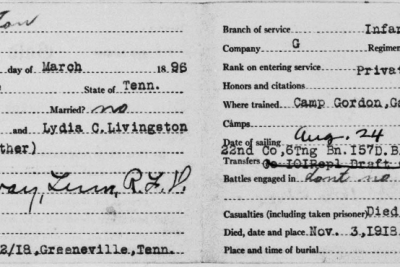 ton
day of March 1896
State of Tenn.
Married? no
and Lydia C. Livingston
ther)
way, Tenn, R.F.D.
2/18, Greeneville, Tenn.
Branch of service Infan
Company G Regimen
Rank on entering service Privat
Honors and citations
Where trained Camp Gordon, Ga
Camps
Date of sailing Aug. 24
22nd Co, 6Tng Bn. I57D.B
Transfers Co IOIRepl Draft
Battles engaged in dont no
Casualties (including taken prisoner) Died
Died, date and place Nov. 3, 1918
Place and time of burial